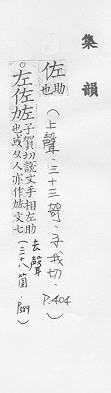 集韻
佐助也(上聲.三十三哿.子我切.P.404
左佐㔫子賀切說文手相左助也或从人亦作㔫文七
去聲(三十八箇.P.589